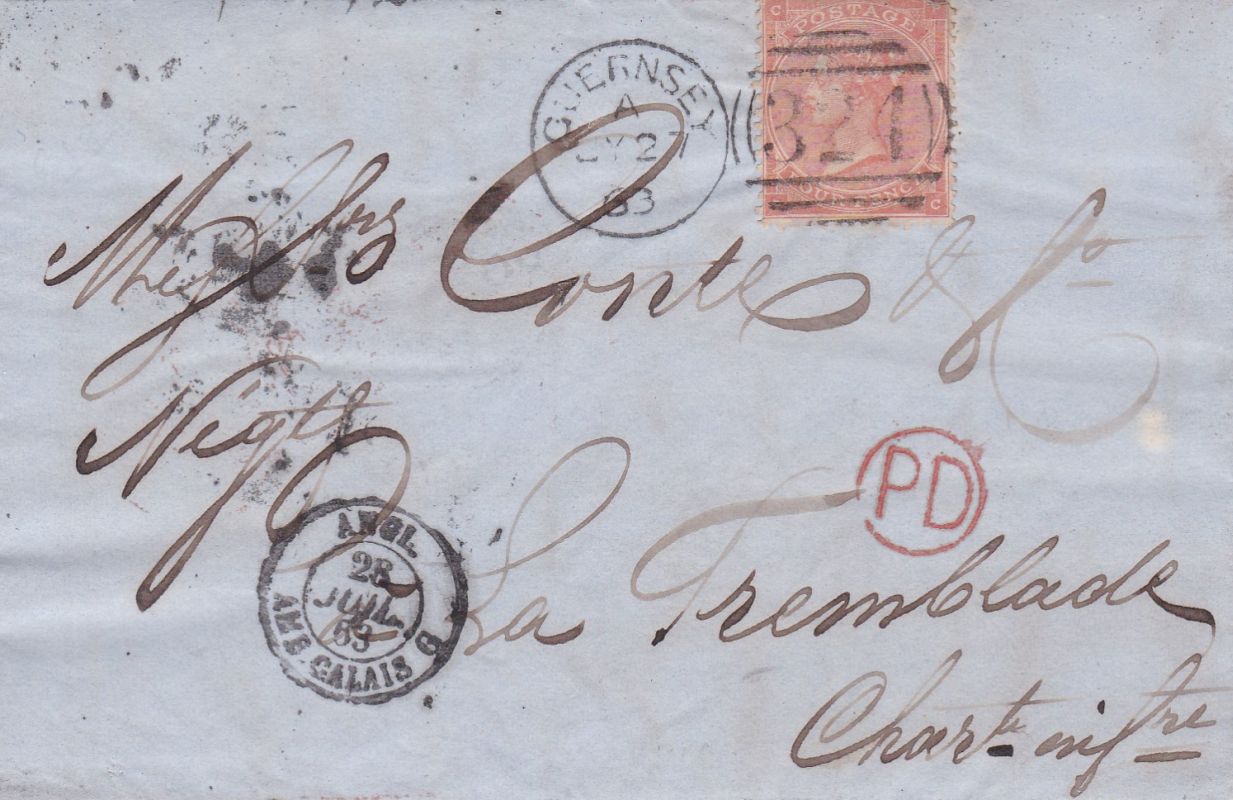 POSTAGE
C
324
FOUR PENCE
C
GUERNSEY
A
JY 27
63
Conte & Co
Négts
PD
ANGL.
28
JUIL.
63
AMB. CALAIS G
La Tremblade
Charte infre